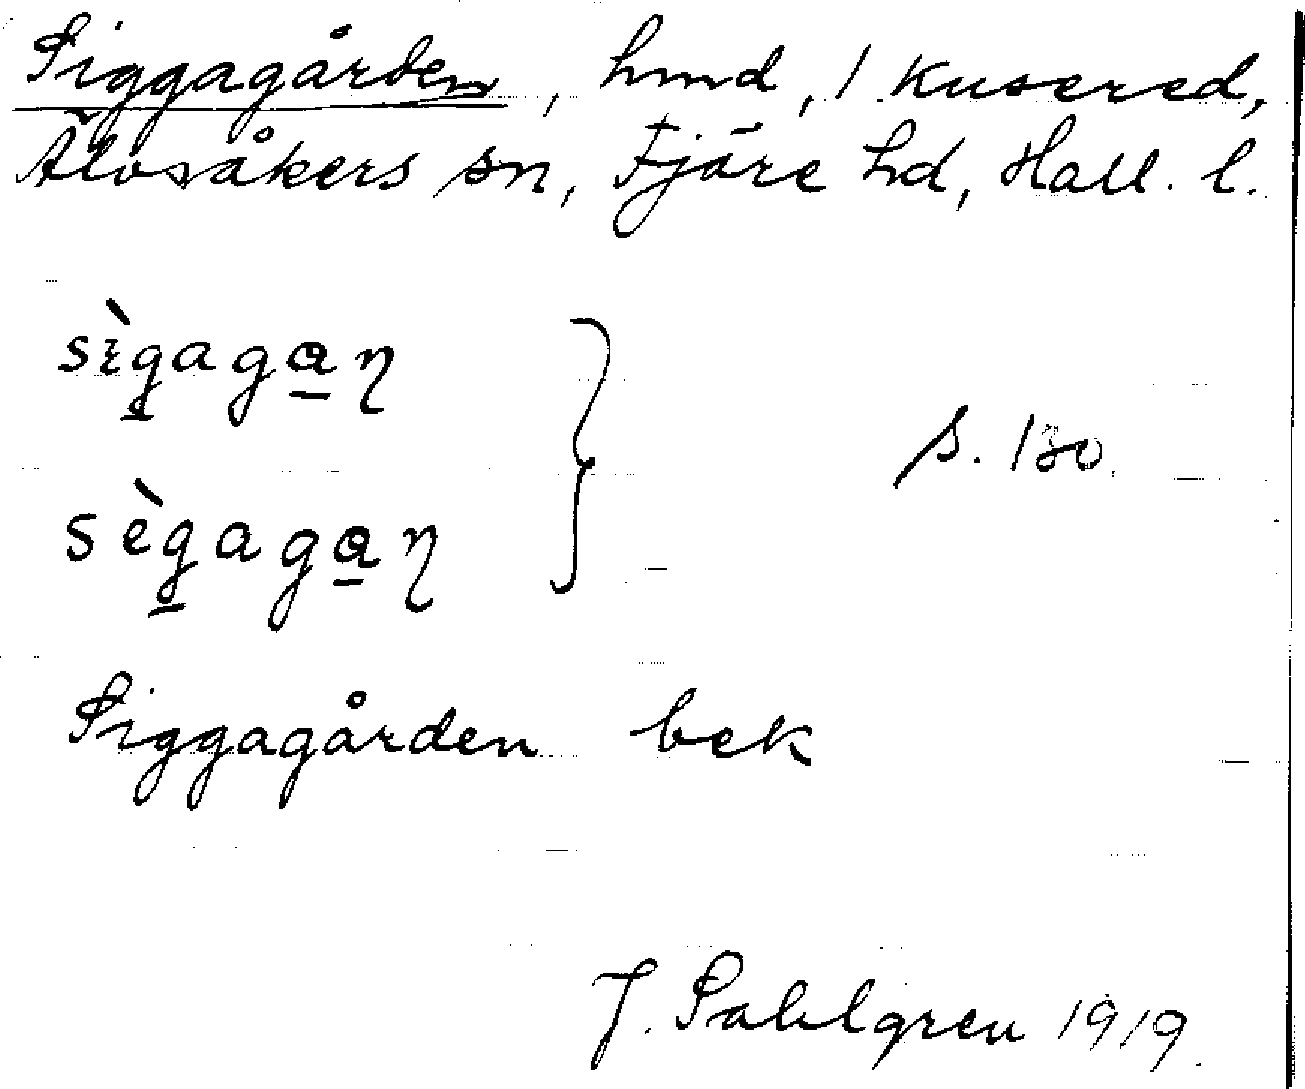 Siggagården, hmd, 1 Kusered,
Älvsåkers sn, Fjäre hd, Hall. l.
sìgagan
s. 130.
sègagan
Siggagården bek
J. Sahlgren 1919.